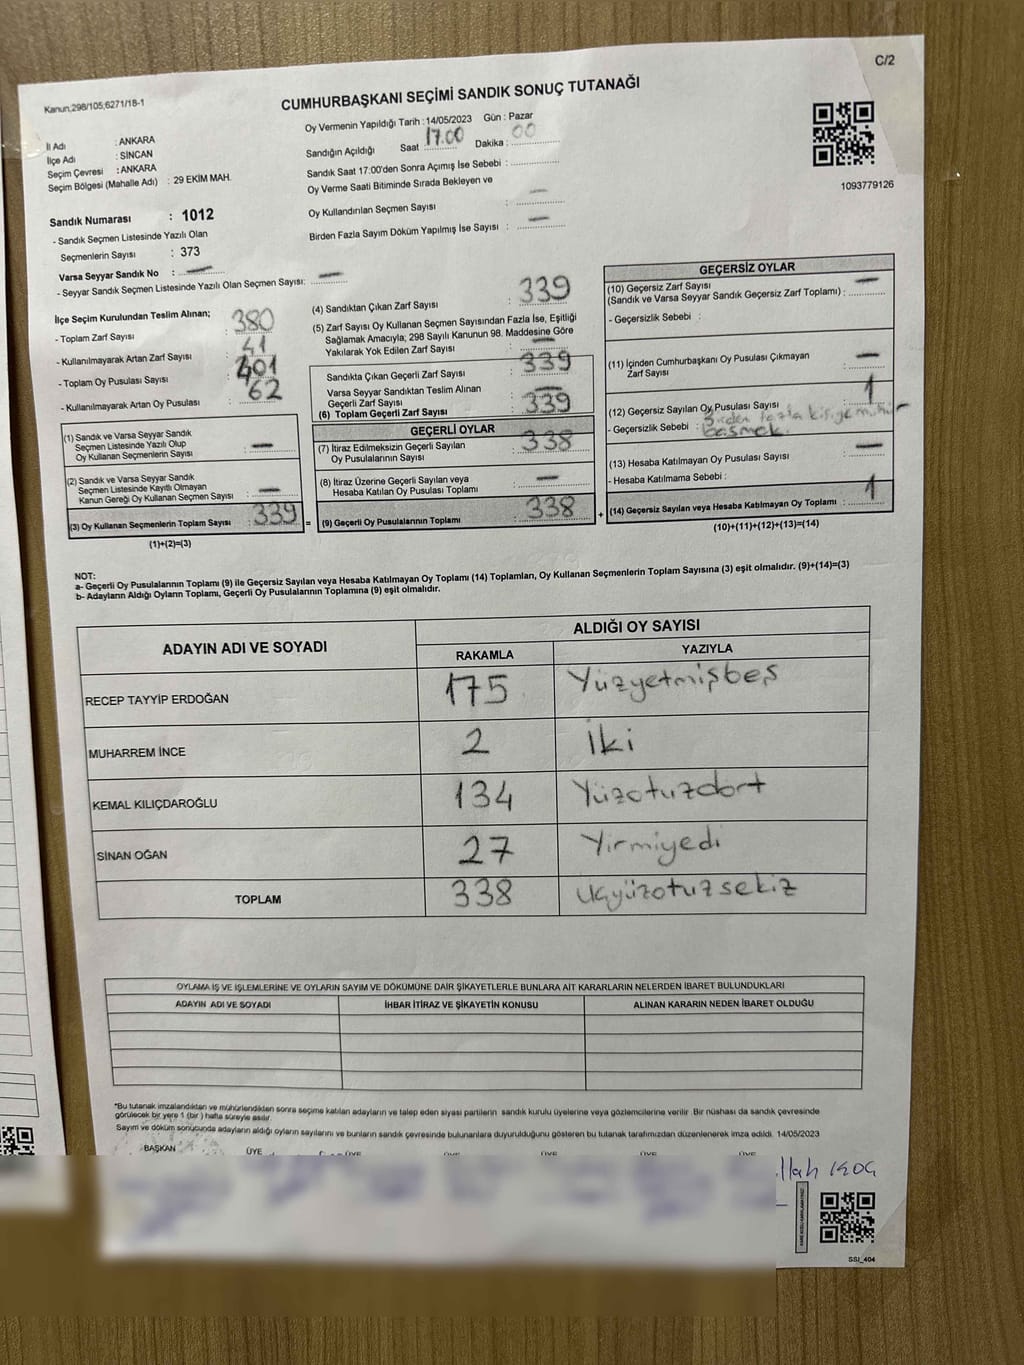 C/2
Kanun;298/105;6271/18-1
CUMHURBAŞKANI SEÇİMİ SANDIK SONUÇ TUTANAĞI
İl Adı : ANKARA
İlçe Adı : SİNCAN
Seçim Çevresi : ANKARA
Seçim Bölgesi (Mahalle Adı) : 29 EKİM MAH.
Oy Vermenin Yapıldığı Tarih : 14/05/2023 Gün : Pazar
Sandığın Açıldığı Saat 17.00 Dakika : 00
Sandık Saat 17:00'den Sonra Açımış İse Sebebi :
Oy Verme Saati Bitiminde Sırada Bekleyen ve
Oy Kullandırılan Seçmen Sayısı : —
Birden Fazla Sayım Döküm Yapılmış İse Sayısı : —
1093779126
Sandık Numarası : 1012
- Sandık Seçmen Listesinde Yazılı Olan
Seçmenlerin Sayısı : 373
Varsa Seyyar Sandık No : —
- Seyyar Sandık Seçmen Listesinde Yazılı Olan Seçmen Sayısı: —
İlçe Seçim Kurulundan Teslim Alınan;
- Toplam Zarf Sayısı : 380
- Kullanılmayarak Artan Zarf Sayısı : 41
- Toplam Oy Pusulası Sayısı : 401
- Kullanılmayarak Artan Oy Pusulası : 62
(1) Sandık ve Varsa Seyyar Sandık
Seçmen Listesinde Yazılı Olup
Oy Kullanan Seçmenlerin Sayısı : —
(2) Sandık ve Varsa Seyyar Sandık
Seçmen Listesinde Kayıtlı Olmayan
Kanun Gereği Oy Kullanan Seçmen Sayısı : —
(3) Oy Kullanan Seçmenlerin Toplam Sayısı : 339 =
(1)+(2)=(3)
(4) Sandıktan Çıkan Zarf Sayısı : 339
(5) Zarf Sayısı Oy Kullanan Seçmen Sayısından Fazla İse, Eşitliği
Sağlamak Amacıyla; 298 Sayılı Kanunun 98. Maddesine Göre
Yakılarak Yok Edilen Zarf Sayısı : —
Sandıkta Çıkan Geçerli Zarf Sayısı : 339
Varsa Seyyar Sandıktan Teslim Alınan
Geçerli Zarf Sayısı : —
(6) Toplam Geçerli Zarf Sayısı : 339
GEÇERLİ OYLAR
(7) İtiraz Edilmeksizin Geçerli Sayılan
Oy Pusulalarının Sayısı : 338
(8) İtiraz Üzerine Geçerli Sayılan veya
Hesaba Katılan Oy Pusulası Toplamı : —
(9) Geçerli Oy Pusulalarının Toplamı : 338 +
GEÇERSİZ OYLAR
(10) Geçersiz Zarf Sayısı
(Sandık ve Varsa Seyyar Sandık Geçersiz Zarf Toplamı) : —
- Geçersizlik Sebebi :
(11) İçinden Cumhurbaşkanı Oy Pusulası Çıkmayan
Zarf Sayısı : —
(12) Geçersiz Sayılan Oy Pusulası Sayısı : 1
- Geçersizlik Sebebi : Birden fazla kişiye mühür
basmek.
(13) Hesaba Katılmayan Oy Pusulası Sayısı : —
- Hesaba Katılmama Sebebi :
(14) Geçersiz Sayılan veya Hesaba Katılmayan Oy Toplamı : 1
(10)+(11)+(12)+(13)=(14)
NOT:
a- Geçerli Oy Pusulalarının Toplamı (9) ile Geçersiz Sayılan veya Hesaba Katılmayan Oy Toplamı (14) Toplamları, Oy Kullanan Seçmenlerin Toplam Sayısına (3) eşit olmalıdır. (9)+(14)=(3)
b- Adayların Aldığı Oyların Toplamı, Geçerli Oy Pusulalarının Toplamına (9) eşit olmalıdır.
ADAYIN ADI VE SOYADI ALDIĞI OY SAYISI
RAKAMLA YAZIYLA
RECEP TAYYİP ERDOĞAN 175 Yüzyetmişbeş
MUHARREM İNCE 2 İki
KEMAL KILIÇDAROĞLU 134 Yüzotuzdört
SİNAN OĞAN 27 Yirmiyedi
TOPLAM 338 Üçyüzotuzsekiz
OYLAMA İŞ VE İŞLEMLERİNE VE OYLARIN SAYIM VE DÖKÜMÜNE DAİR ŞİKAYETLERLE BUNLARA AİT KARARLARIN NELERDEN İBARET BULUNDUKLARI
ADAYIN ADI VE SOYADI İHBAR İTİRAZ VE ŞİKAYETİN KONUSU ALINAN KARARIN NEDEN İBARET OLDUĞU
*Bu tutanak imzalandıktan ve mühürlendikten sonra seçime katılan adayların ve talep eden siyasi partilerin sandık kurulu üyelerine veya gözlemcilerine verilir. Bir nüshası da sandık çevresinde
görülecek bir yere 1 (bir) hafta süreyle asılır.
Sayım ve döküm sonucunda adayların aldığı oyların sayılarını ve bunların sandık çevresinde bulunanlara duyurulduğunu gösteren bu tutanak tarafımızdan düzenlenerek imza edildi. 14/05/2023
BAŞKAN ÜYE ÜYE ÜYE ÜYE ÜYE ÜYE
SSİ_404